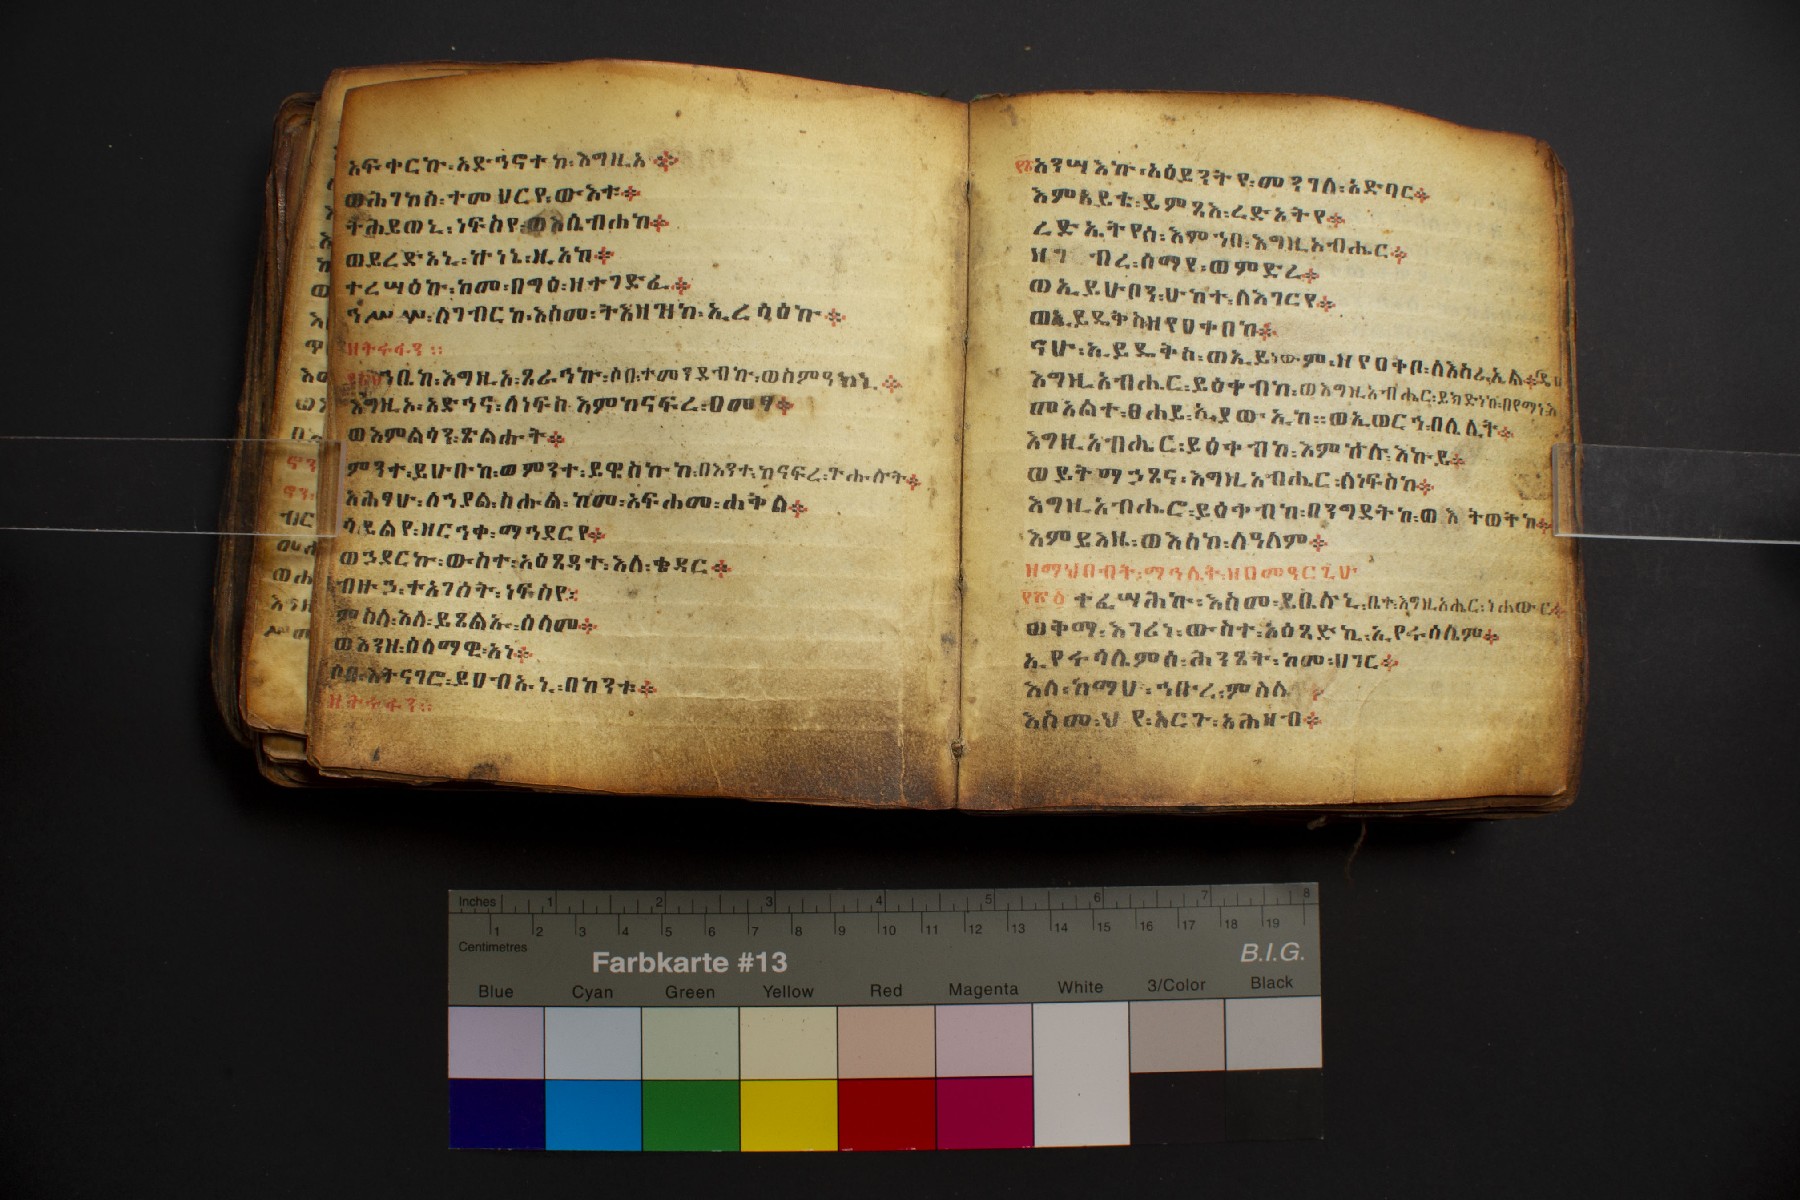 አፍቀርኩ፡አድኅኖተከ፡እግዚአ
ወሕገከሰ፡ተመህርየ፡ውእቱ
ትሕይወኒ፡ነፍስየ፡ወእሴብሐከ
ወይረድአኒ፡ኵነኔ፡ዚአከ
ተረሣዕኩ፡ከመ፡በግዕ፡ዘተገድፈ
ኅሥሥ፡ለገብርከ፡እስመ፡ትእዛዝከ፡ኢረሳዕኩ
ኀቤከ፡እግዚአ፡ጸራኅኩ፡ሶበ፡ተመንደብኩ፡ወስምዓኒ
እግዚአ፡አድኅና፡ለነፍስ፡እምከናፍረ፡ዐመፃ
ወእምልሳን፡ጽልሑት
ምንተ፡ይሁቡከ፡ወምንተ፡ይዌስኩከ፡በእንተ፡ከናፍረ፡ጕሑሉት
አሕፃሁ፡ለኀያል፡ስሑል፡ከመ፡አፍሐመ፡ሐቅል
ሳይልየ፡ዘርኅቀ፡ማኅደርየ
ወኃደርኩ፡ውስተ፡አዕፃዳተ፡እለ፡ቄዳር
ብዙኃ፡ተአገሰት፡ነፍስየ፤
ምስለ፡እለ፡ይጸልኡ፡ሰላመ
ወእንዘ፡ሰላማዊ፡አነ
ሶበ፡እትናገሮ፡ይፀብኡኒ፡በከንቱ
አንሣእኩ፡አዕይንትየ፡መንገለ፡አድባር
እምአይቴ፡ይምጻእ፡ረድኤትየ
ረድኤትየሰ፡እምኀበ፡እግዚአብሔር
ዘገብረ፡ሰማየ፡ወምድረ
ወኢይሁበን፡ሁከተ፡ለእገርየ
ወኢይዴቅስ ዘየዐቀበከ
ናሁ፡ኢይዴቅስ፡ወኢይነውም፡ዘየዐቅቦ፡ለእስራኤል
እግዚአብሔር፡ይዕቀብከ፡ወእግዚአብሔር፡ይክድነከ፡በየማነ እ
መአልተ፡ፀሐይ፡ኢያውኢከ። ወኢወርኅ፡በሌሊት
እግዚአብሔር፡ይዕቀብከ፡እምኵሉ፡እኩይ
ወይትማኃፀና፡እግዚአብሔር፡ለነፍስከ
እግዚአብሔር፡ይዕቀብከ፡በንግደትከ፡ወእትወትከ
እምይእዜ፡ወእስከ፡ለዓለም
ተፈሣሕኩ፡እስመ፡ይቤሉኒ፡ቤተ፡እግዚአሔር፡ነሐውር
ወቅማ፡እገሪነ፡ውስተ፡አዕጻድኪ፡ኢየሩሳሌም
ኢየሩሳሌምሰ፡ሕንጽት፡ከመ፡ሀገር
እለ፡ከማሀ፡ኀቡረ፡ምስለ
እስመ፡ህየ፡ዐርጉ፡አሕዛብ
Inches 1 2 3 4 5 6 7 8
1 2 3 4 5 6 7 8 9 10 11 12 13 14 15 16 17 18 19
Centimetres
Farbkarte #13
B.I.G.
Blue Cyan Green Yellow Red Magenta White 3/Color Black